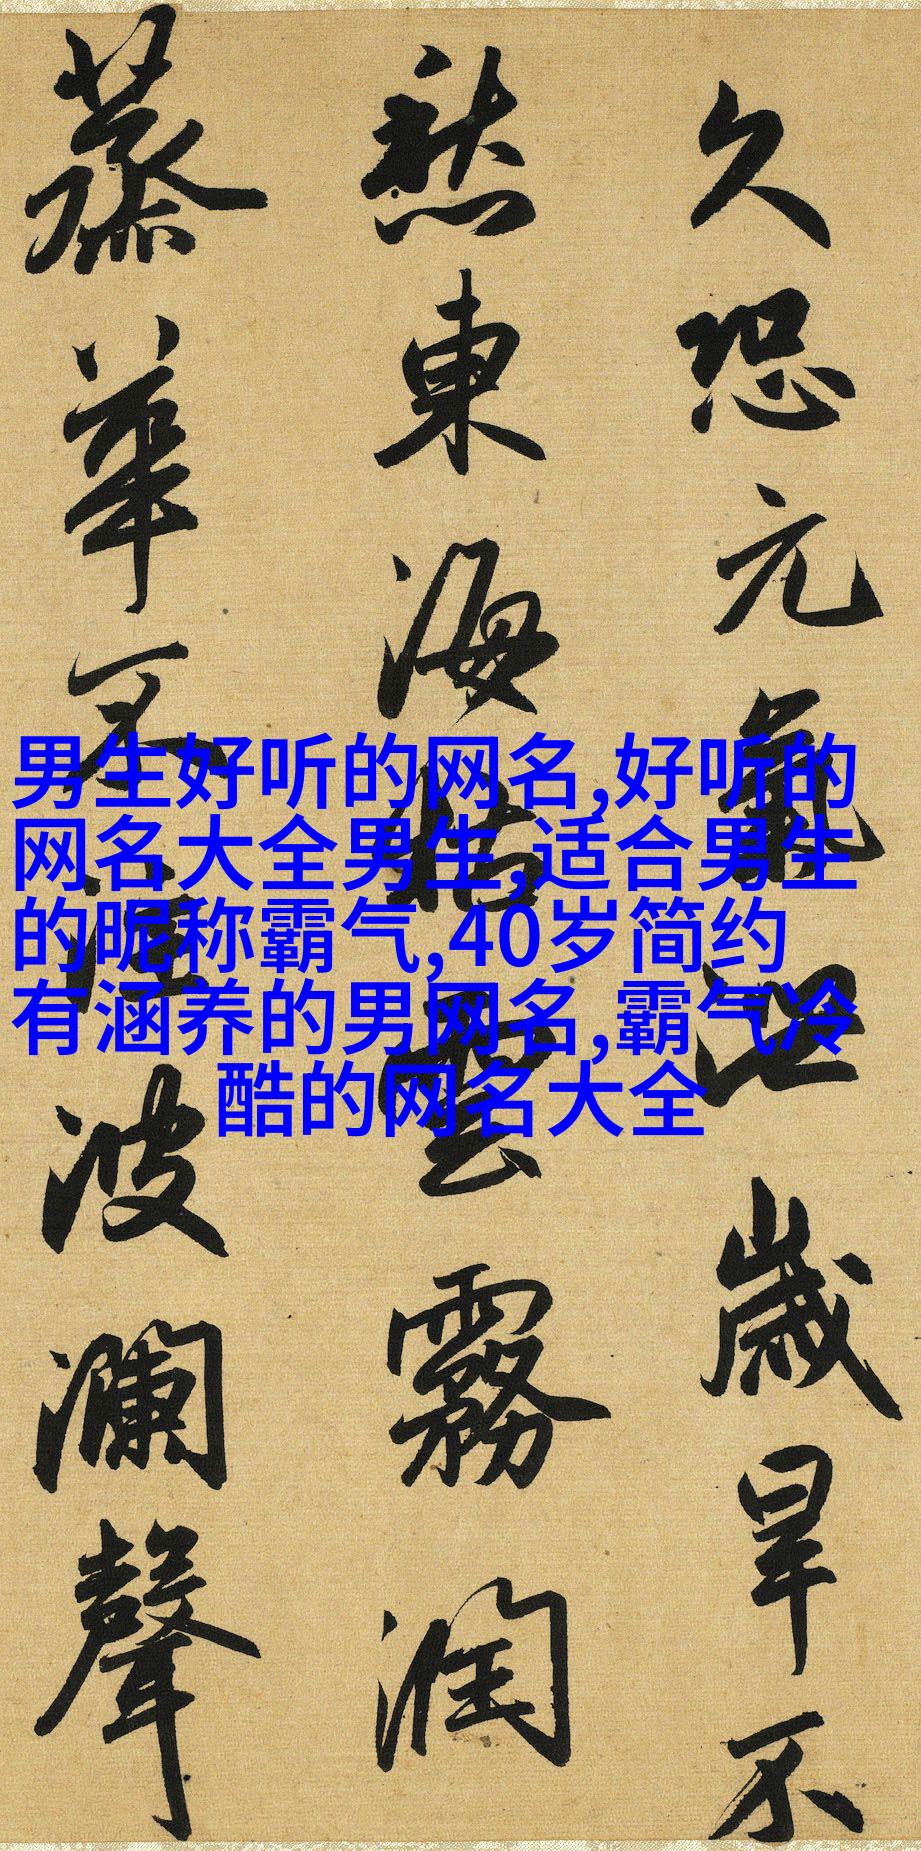 久恐元氣泄歲旱不
愁東海枯雲霧潤
蒸華不注波瀾聲
男生好听的网名,好听的
网名大全男生,适合男生
的昵称霸气,40岁简约
有涵养的男网名,霸气冷
酷的网名大全